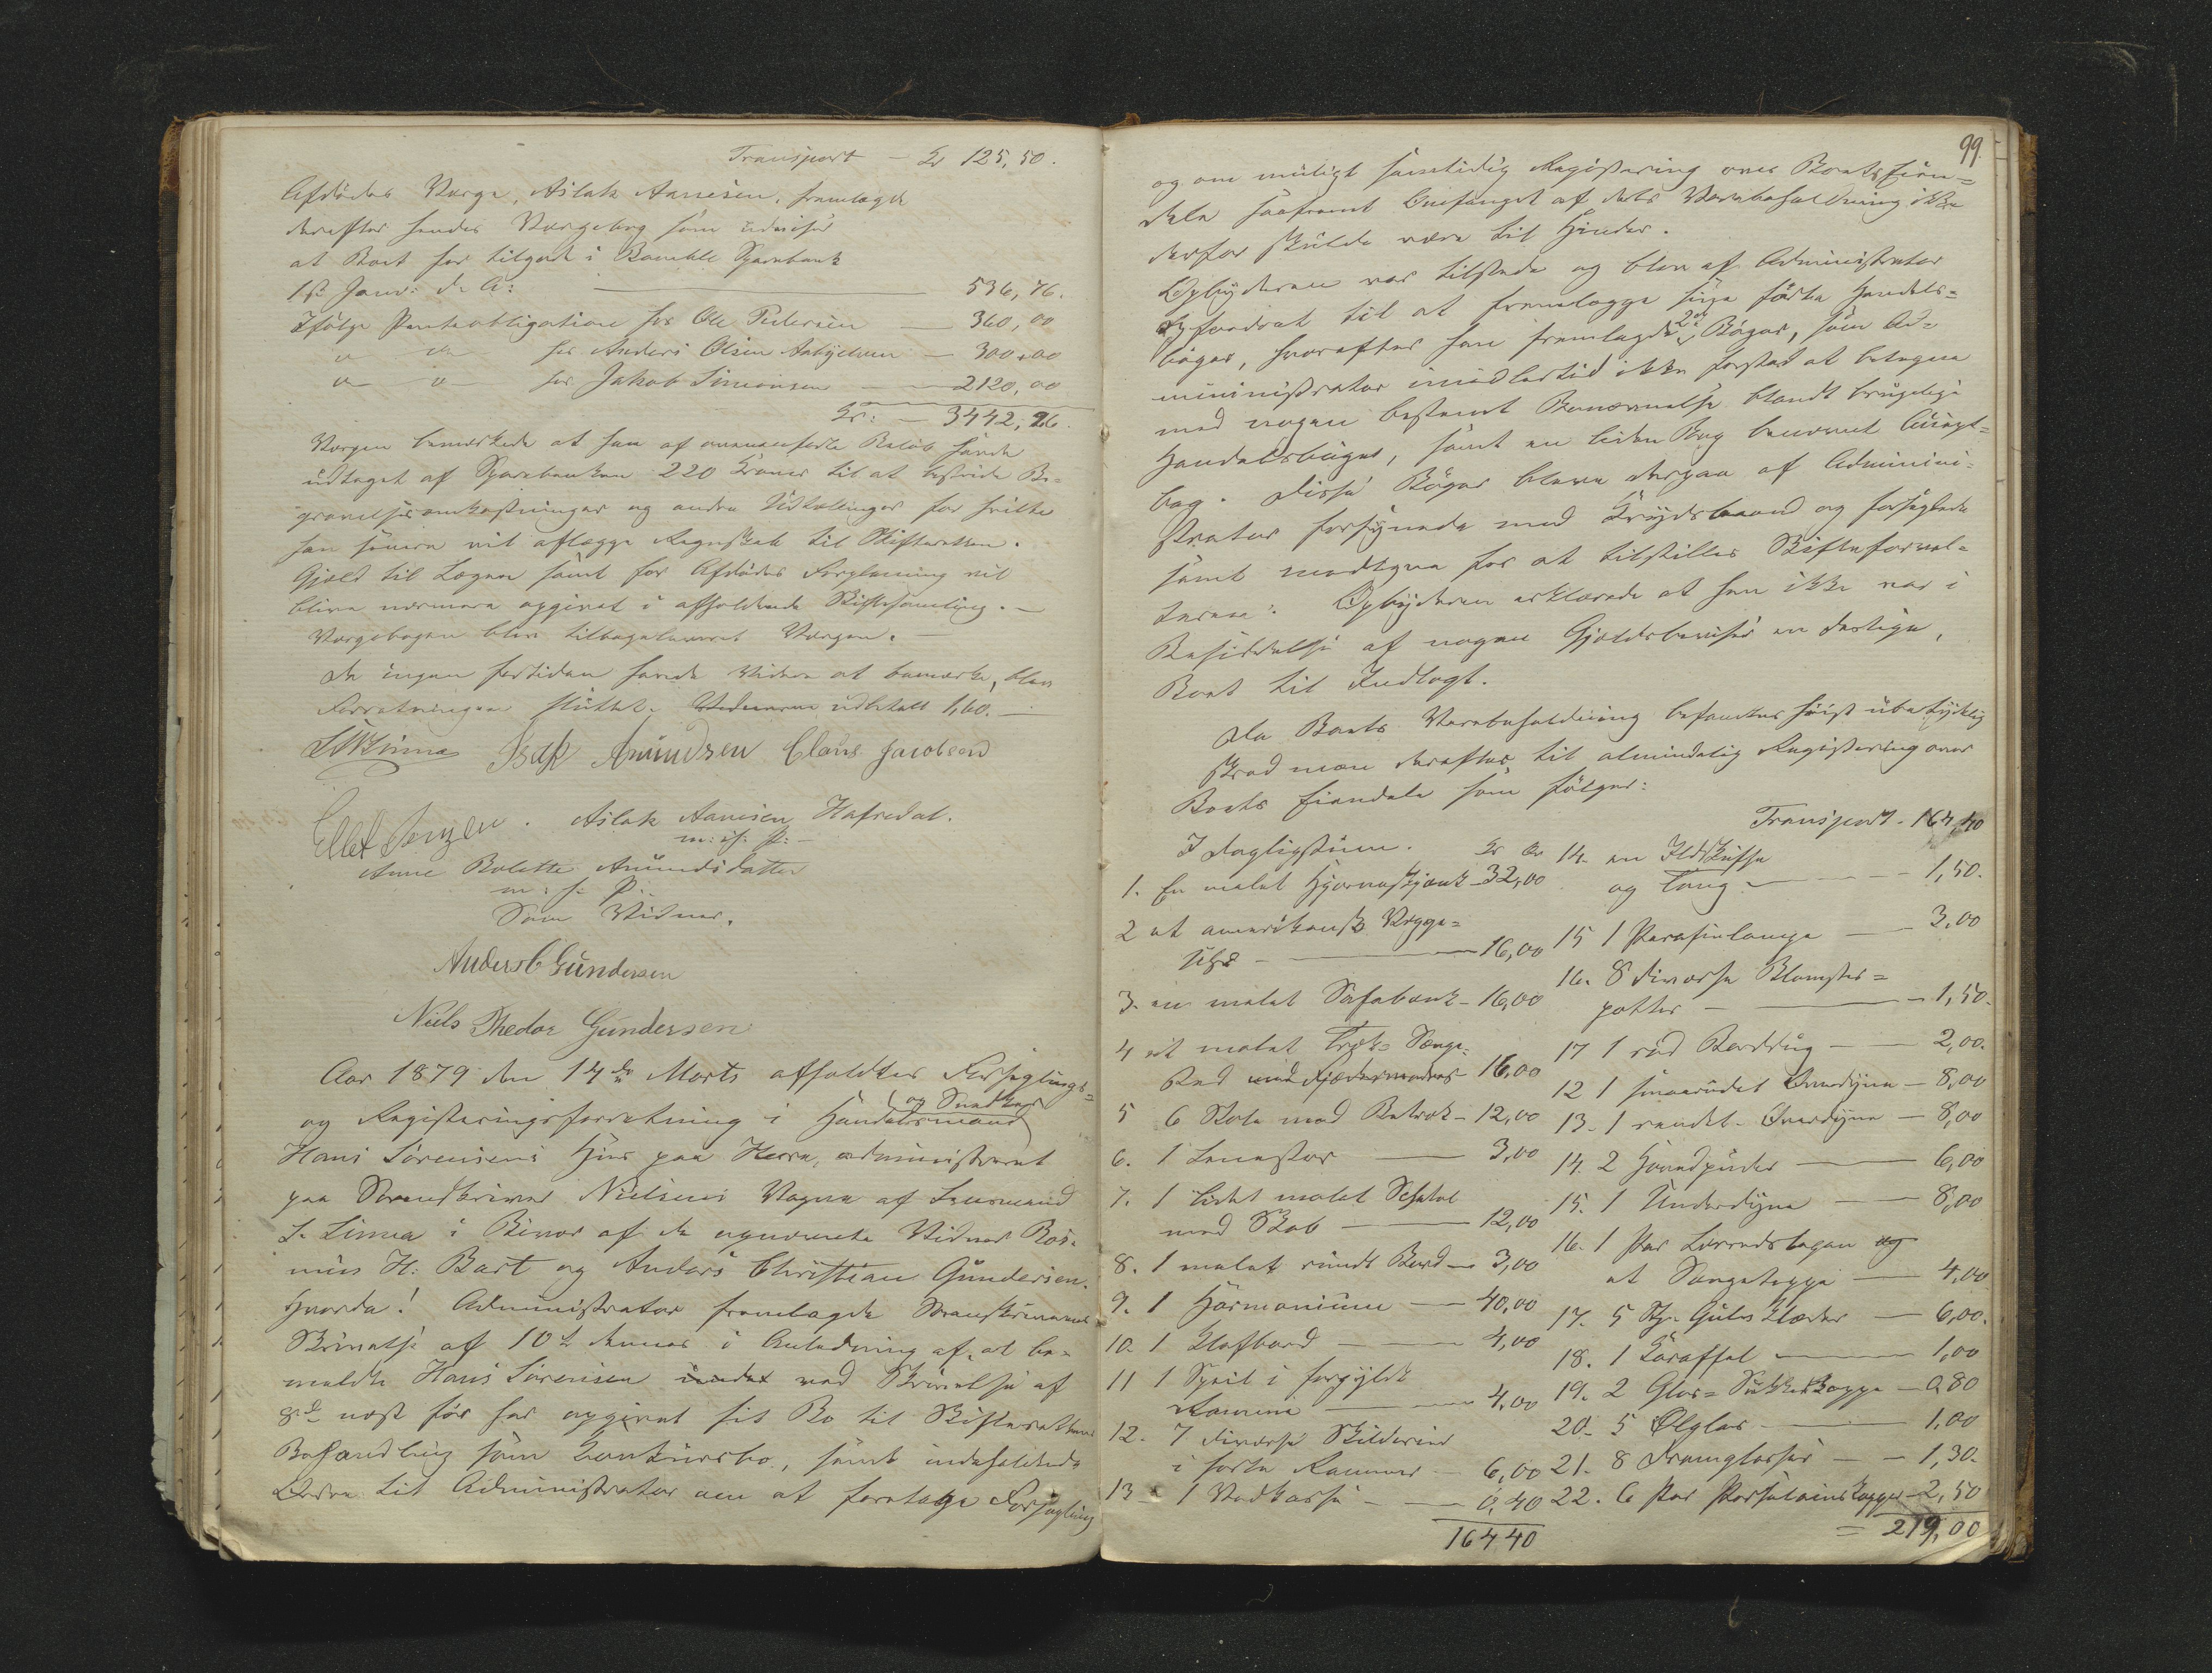 Transport - Kr 125,50.
Afdødes Værge, Aslak Aanesen, fremlagde
derefter hendes Værgebog som udviser
at Boet har tilgode i Bamble Sparebank
1ste Janr: d. A: 536,76.
Ifølge Panteobligation fra Ole Pedersen 360,00
" " fra Anders Olsen 300,00
" " fra Jakob Simonsen 2120,00
Kr: 3442,26.
Værgen bemærkede at han af ovennævnte Beløb havde
udtaget af Sparebanken 220 Kroner til at bestride Be-
gravelsesomkostninger og andre Udtællinger for hvilke
han senere vil aflægge Regnskab til Skifteretten.
Gjæld til Lægen samt for Afdødes Forpleining vil
blive nærmere opgivet i afholdende Skiftesamling. -
Værgebogen blev tilbageleveret Værgen. -
Da ingen fortiden havde videre at bemærke, blev
Forretningen sluttet. Vidnerne udbetalt 1,60. -
Isak Amundsen Claus Jacobsen
Aslak Aanesen Hafredal.
m: f: P: -
Anne Bolette Amundsdatter
m: f: P:
Som Vidner.
Anders C Gundersen
Niels Thedor Gundersen
Aar 1879 den 14de Marts afholdtes Forseglings-
og Registeringsforretning i Handelsmand og Snedker
Hans Sørensens Huus paa Herre, administreret
paa Sorenskriver Nielsens Vegne af Lensmand
L. Linna i Nærvær af de opnævnte Vidner Ras-
mus H. Bart og Anders Christian Gundersen.
Hvorda! Administrator fremlagde Sorenskriverens
Skrivelse af 10de dennes i Anledning af, at be-
meldte Hans Sørensen ved Skrivelse af
8de næst før har opgivet sit Bo til Skifterettens
Behandling som Konkursbo, samt indeholdende
Ordre til Administrator om at foretage Forsegling
99.
og om muligt samtidig Registering over Boets Eien-
dele saafremt Omfanget af dets Varebeholdning ikke
derfor skulde være til Hinder.
Opbyderen var tilstede og blev af Administrator
opfordret til at fremlægge sine førte Handels-
bøger, hvorefter han fremlagde 2de Bøger, som Ad-
ministrator imidlertid ikke forstod at betegne
med nogen bestemt Benævnelse blandt brugelige
Handelsbøger, samt en liden Bog benævnt
bog. Disse Bøger bleve derpaa af Admini-
strator forsynede med Krydsbaand og forseglede
samt modtagne for at tilstilles Skifteforval-
teren. Opbyderen erklærede at han ikke var i
Besiddelse af nogen Gjældsbeviser en deslige,
Boet til Indtægt.
Da Boets Varebeholdning befandtes høist ubetydelig
skred man derefter til almindelig Registering over
Boets Eiendele som følger:
I Dagligstuen. Kr Øre
1. En malet Hjørneskjænk - 32,00
2 et amerikansk Vægge-
Uhr - 16,00
3. en malet Sofabænk - 16,00
4 et malet Træk- Senge-
sted 16,00
5 6 Stole med Betræk - 12,00
6. 1 Lænestol 3,00
7. 1 lidet malet Schatol
med Skab 12,00
8. 1 malet rundt Bord - 3,00
9. 1 Harmonium - 40,00
10. 1 Klafbord 4,00
11 1 Speil i forgyldt
Ramme 4,00
12. 7 diverse Skilderier
i sorte Rammer - 6,00
13 - 1 Vedkasse - 0,40
164 40
Transport - 164,40
14. en Ildskuffe
og Tang 1,50.
15 1 Parafinlampe 3,00
16. 8 diverse Blomster-
potter 1,50.
17 1 rød Borddug 2,00.
12 1 smaarudet Overdyne - 8,00
13. 1 randet Overdyne - 8,00
14. 2 Hovedpuder 6,00
15. 1 Underdyne 8,00
16. 1 Par Lærredslagen og
et Sengeteppe 4,00
17. 5 Stk. Gulvklæder 6,00.
18. 1 Karaffel 1,00
19. 2 Glas- Sukkerkopper - 0,80
20. 5 Ølglas 1,00
21. 8 Dramglasser - 1,30.
22. 6 Par Porselains Kopper - 2,50
= 219,00